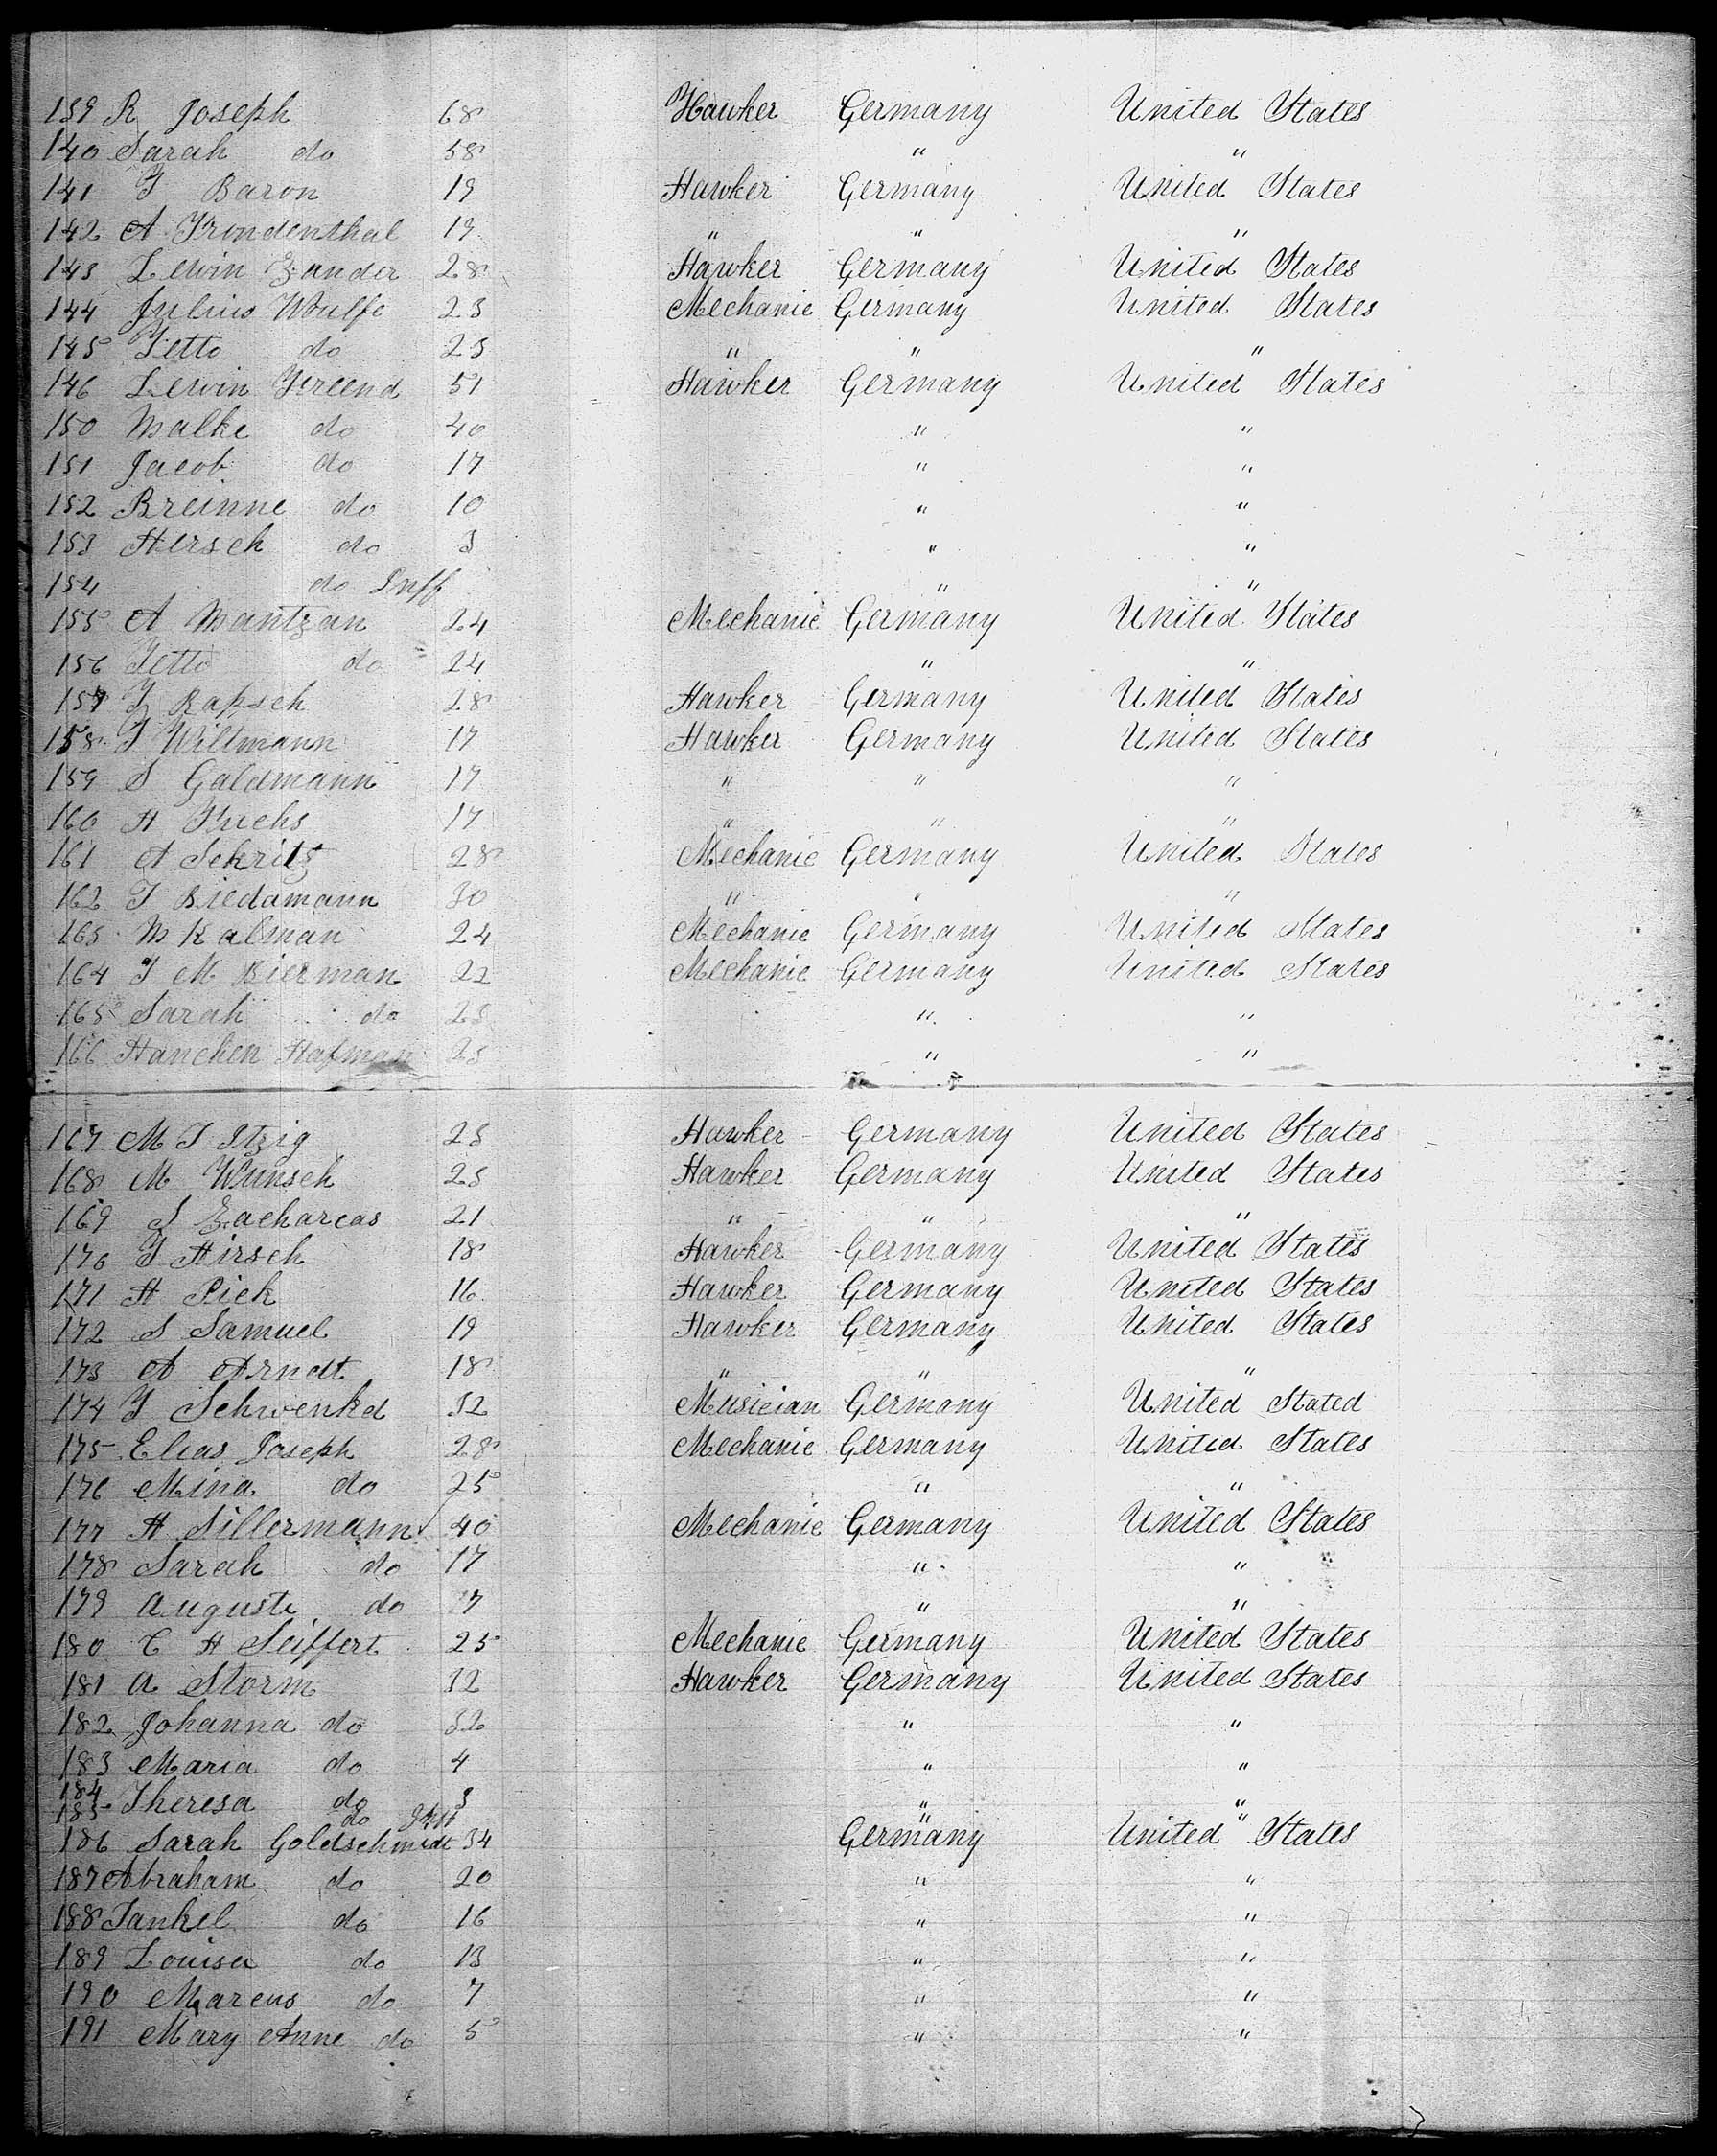 139 R Joseph 68 Hawker Germany United States
140 Sarah do 58 " "
141 J Baron 19 Hawker Germany United States
142 A Frondenthal 19 " " "
143 Lewin Zander 28 Hawker Germany United States
144 Julius Wulfe 23 Mechanic Germany United States
145 Jette do 23 " " "
146 Lewin Freend 51 Hawker Germany United States
150 Malke do 40 " "
151 Jacob do 17 " "
152 Breinne do 10 " "
153 Hersch do 3 " "
154 do Inff " "
155 A Mantzan 24 Mechanic Germany United States
156 Jette do 24 " "
157 J Rapsch 28 Hawker Germany United States
158 J Wiltmann 17 Hawker Germany United States
159 S Galdmann 17 " " "
160 H Fuchs 17 " " "
161 A Sekritz 28 Mechanic Germany United States
162 J Biedamann 30 " " "
163 M Kalman 24 Mechanic Germany United States
164 J M Bierman 22 Mechanic Germany United States
165 Sarah do 23 " "
166 Hanchen Hafman 23 " "
167 M J Itzig 23 Hawker Germany United States
168 M Wunsch 23 Hawker Germany United States
169 S Zacharcas 21 " " "
170 J Hirsch 18 Hawker Germany United States
171 H Pick 16 Hawker Germany United States
172 S Samuel 19 Hawker Germany United States
173 A Arndt 18 " " "
174 J Schwenked 32 Musician Germany United Stated
175 Elias Joseph 28 Mechanic Germany United States
176 Mina do 25 " "
177 H Sillermann 40 Mechanic Germany United States
178 Sarah do 17 " "
179 Auguste do 7 " "
180 C H Seiffert 25 Mechanic Germany United States
181 A Storm 32 Hawker Germany United States
182 Johanna do 32 " "
183 Maria do 4 " "
184 Theresa do 3 " "
185 do Inff " "
186 Sarah Goldschmidt 34 Germany United States
187 Abraham do 20 " "
188 Jankel do 16 " "
189 Louisa do 13 " "
190 Marcus do 7 " "
191 Mary Anne do 5 " "